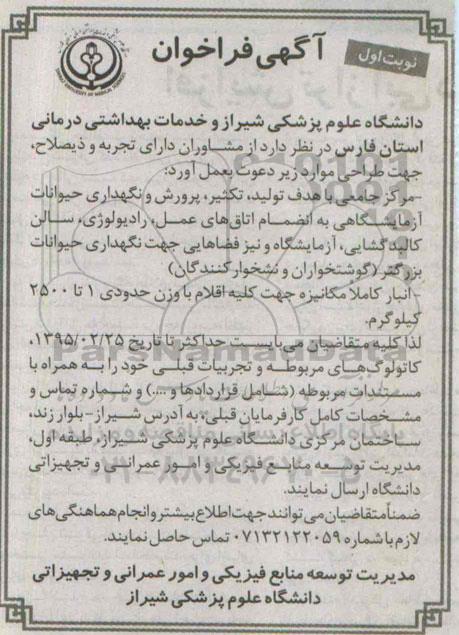 آگهی فراخوان
نوبت اول
دانشگاه علوم پزشکی شیراز و خدمات بهداشتی درمانی
استان فارس در نظر دارد از مشاوران دارای تجربه و ذیصلاح،
جهت طراحی موارد زیر دعوت بعمل آورد:
-مرکز جامعی با هدف تولید، تکثیر، پرورش و نگهداری حیوانات
آزمایشگاهی به انضمام اتاق‌های عمل، رادیولوژی، سالن
کالبدگشایی، آزمایشگاه و نیز فضاهایی جهت نگهداری حیوانات
بزرگتر (گوشتخواران و نشخوارکنندگان)
-انبار کاملاً مکانیزه جهت کلیه اقلام با وزن حدودی ۱ تا ۲۵۰۰
کیلوگرم.
لذا کلیه متقاضیان می‌بایست حداکثر تا تاریخ ۱۳۹۵/۰۲/۲۵،
کاتولوگ‌های مربوطه و تجربیات قبلی خود را به همراه با
مستندات مربوطه (شامل قراردادها و ....) و شماره تماس و
مشخصات کامل کارفرمایان قبلی، به آدرس شیراز-بلوار زند،
ساختمان مرکزی دانشگاه علوم پزشکی شیراز، طبقه اول،
مدیریت توسعه منابع فیزیکی و امور عمرانی و تجهیزاتی
دانشگاه ارسال نمایند.
ضمناً متقاضیان می‌توانند جهت اطلاع بیشتر و انجام هماهنگی‌های
لازم با شماره ۰۷۱۳۲۱۲۲۰۵۹ تماس حاصل نمایند.
مدیریت توسعه منابع فیزیکی و امور عمرانی و تجهیزاتی
دانشگاه علوم پزشکی شیراز
ParsNamadData